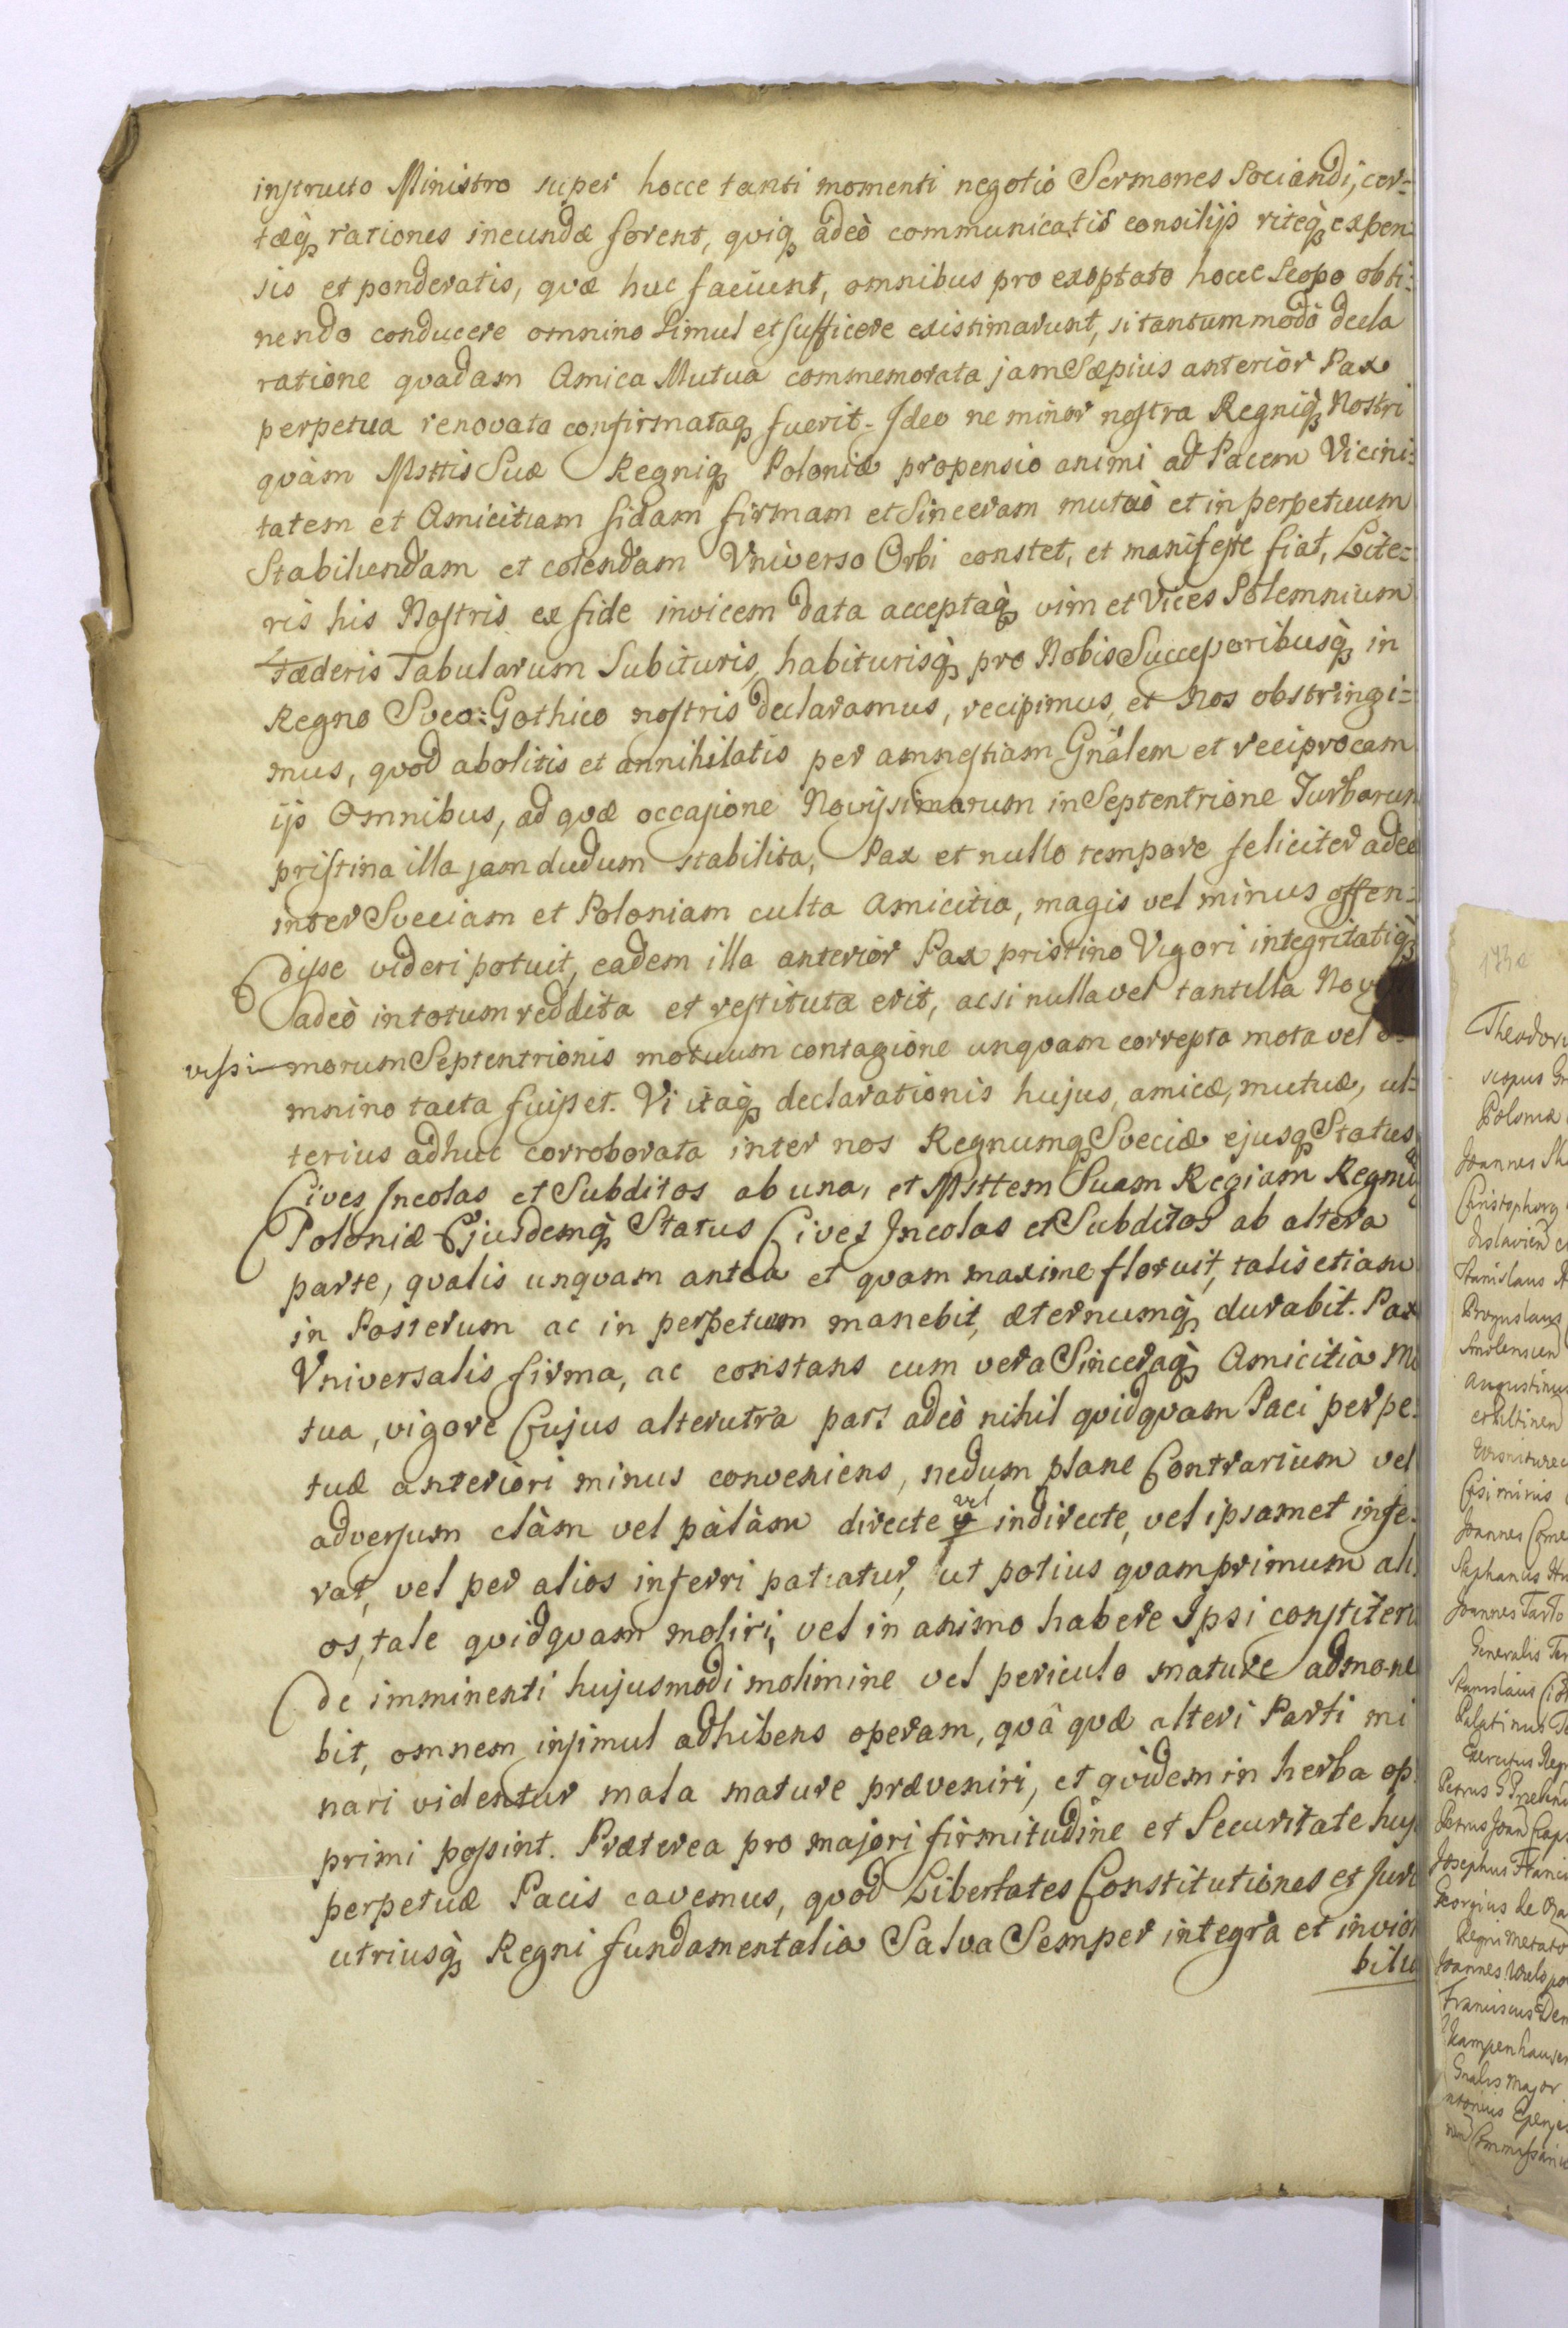 instructo Ministro super hocce tanti momenti negotio Sermones Sociandi, cer=
tæq́ rationes ineundæ forent, quiq́ adeò communicatis consilijs riteq́ expen
sis et ponderatis, quæ huc faciunt, omnibus pro exoptato hocce Scopo obti=
nendo conducere omnino Simul et sufficere existimarunt, si tantummodò decla
ratione quadam Amica Mutua commemorata jam Sæpius anterior Pax
perpetua renovata confirmataq́ fuerit. Ideo ne minor nostra Regniq́ Nostri
quàm Mttis Suæ Regniq́ Poloniæ propensio animi ad Pacem Vicini=
tatem et Amicitiam fidam firmam et Sinceram mutuò et in perpetuum
Stabiliendam et colendam Universo Orbi constet, et manifeste fiat, Lite=
ris his Nostris ex fide invicem data acceptaq́ vim et Vices Solemnium
Fæderis Tabularum Subituris, habiturisq́ pro Nobis Successoribusq́ in
Regno Sveo=Gothico nostris declaramus, recipimus, et Nos obstringi=
mus, quod abolitis et annihilatis per amnestiam Gnãlem et reciprocam
ijs Omnibus, ad quæ occasione Novissimarum in Septentrione Turbarum
pristina illa jam dudum stabilita, Pax et nullo tempore feliciter adeo
inter Sveciam et Poloniam culta Amicitia, magis vel minus offen=
disse videri potuit, eadem illa anterior Pax pristino Vigori integritatiq́
adeò in totum reddita et restituta erit, ac si nulla vel tantilla No
vissi morum Septentrionis motuum contagione unquam correpta mota vel o=
mnino tacta fuisset. Vi itaq́ declarationis hujus, amicæ, mutuæ, ul=
terius adhuc corroborata inter nos Regnumq́ Sveciæ ejusq́ Status
Cives, Incolas et Subditos ab una, et Mttem Suam Regiam Regnuq́
Poloniæ Ejusdemq́ Status Cives Incolas et Subditos ab altera
parte, qualis unquam antea et quam maxime floruit, talis etiam
in Posterum ac in perpetuum manebit, æternumq́ durabit. Pax
Universalis firma, ac constans cum vera Sinceraq́ Amicitia Mu
tua, vigore Cujus alterutra pars adeò nihil quidquam Paci perpe=
tuæ anteriori minus conveniens, nedum plane Contrarium vel
adversum clàm vel pàlàm directe vel indirecte, vel ipsamet infe=
rat, vel per alios inferri patiatur, ut potius quamprimum ali=
os, tale quidquam moliri, vel in animo habere Ipsi constiteri
De imminenti hujusmodi molimine vel periculo mature admone
bit, omnem insimul adhibens operam, quâ quæ alteri Parti mi
nari videntur mala mature præveniri, et quidem in herba op=
primi possint. Præterea pro majori firmitudine et Securitate huj
perpetuæ Pacis cavemus, quod Libertates Constitutiones et Jura
utriusq́ Regni fundamentalia Salva Semper integra et inviol
bilia
Theodor
scopus
Poloniæ
Joannes
Christophorg
Stanislaus
Augustinus
Joannes
Stephanus
Joannes Tarlo
Generalis
Stanislaus
Palatinus
Exercitus
Petrus
Petrus Joan
Josephus
Georgius de
Regni Metato
Joannes
Franciscus
Kampenhausen
Gralis Major